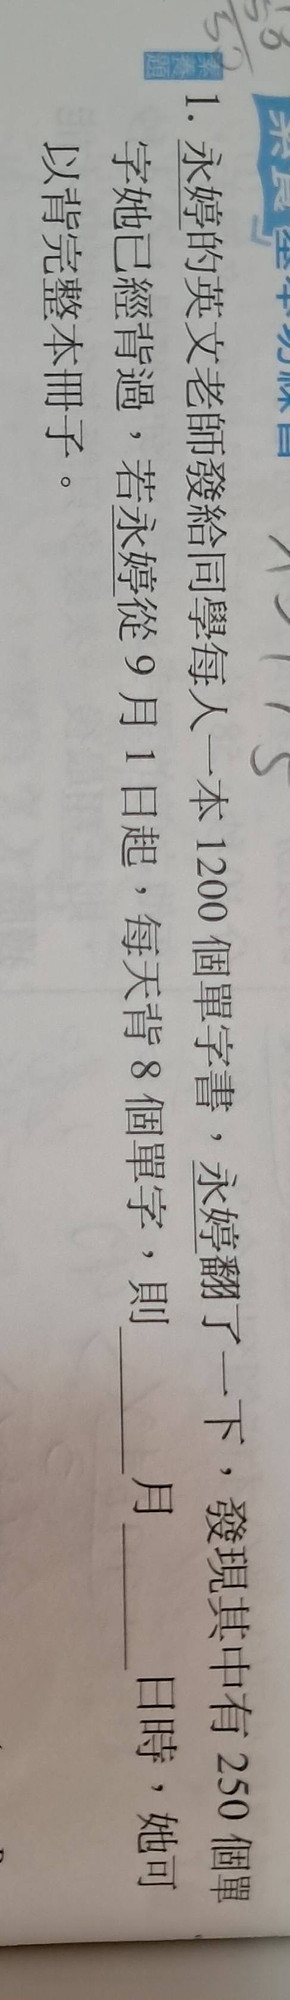 素養題
1. 永婷的英文老師發給同學每人一本 1200 個單字書，永婷翻了一下，發現其中有 250 個單
字她已經背過，若永婷從 9 月 1 日起，每天背 8 個單字，則＿＿＿月＿＿＿日時，她可
以背完整本冊子。